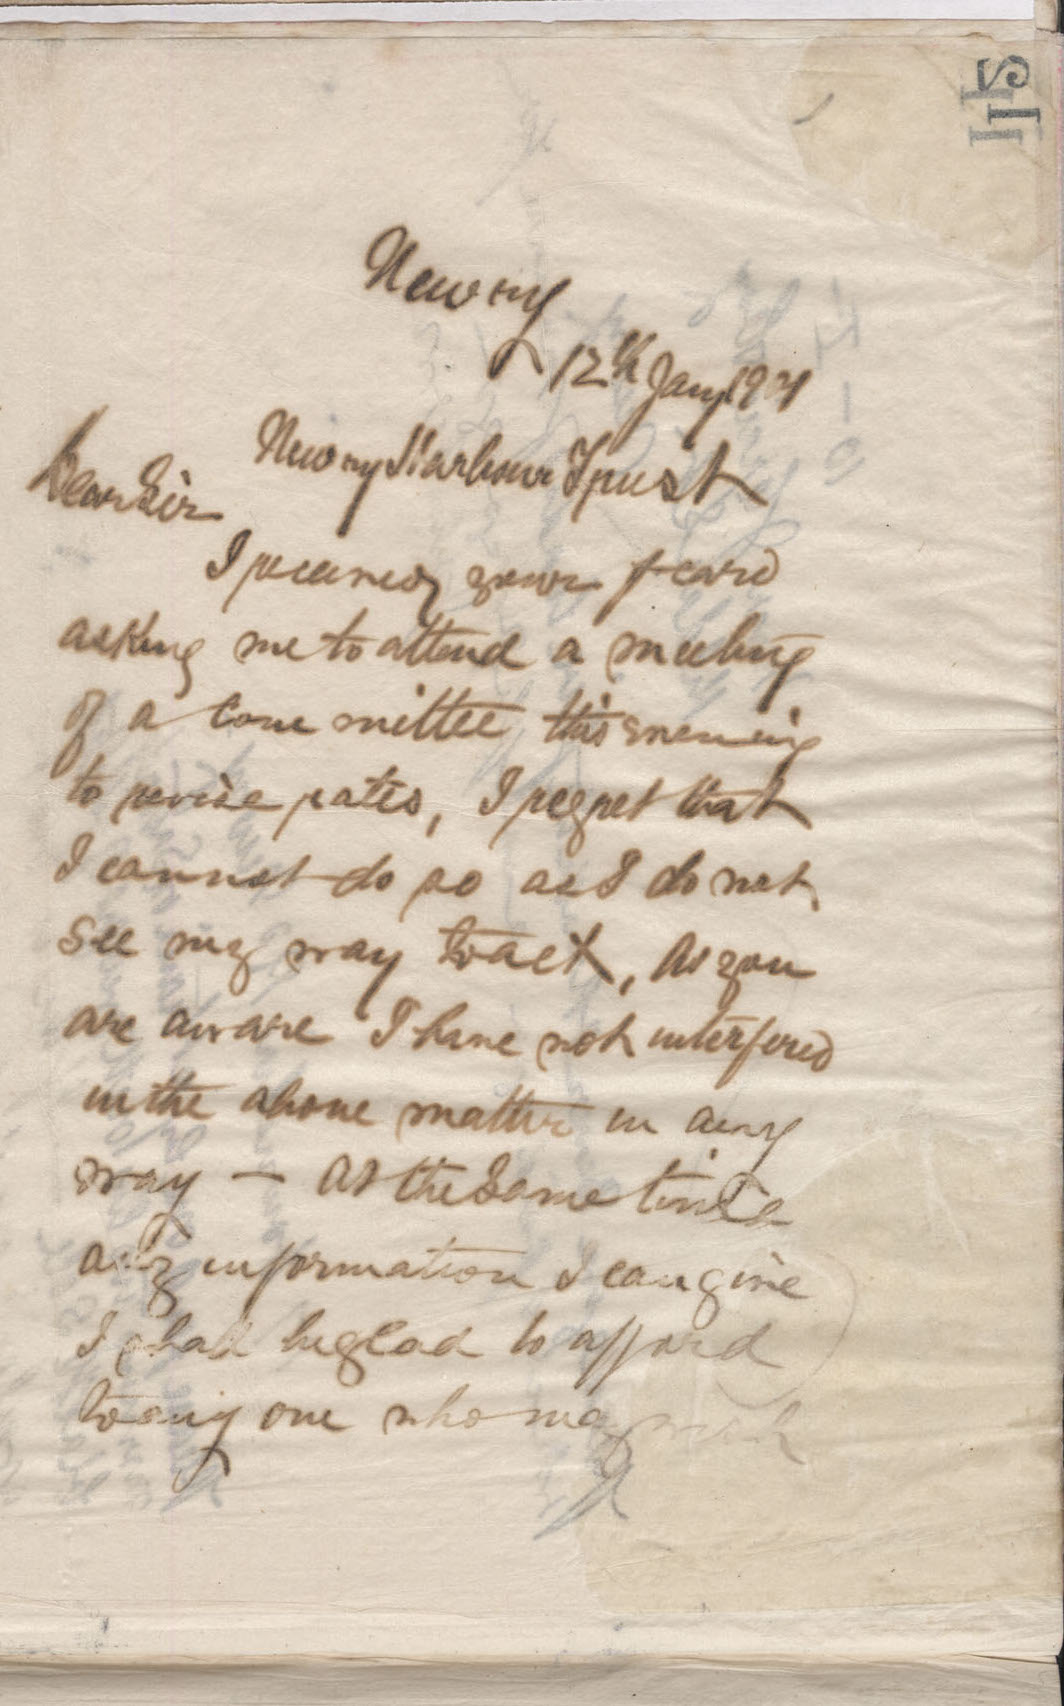 115
Newry
12th Jany 1901
Newry Harbour Trust
Dear Sir
I received your card
asking me to attend a meeting
of a Committee this evening
to revise rates, I regret that
I cannot do so as I do not
see my way to act, As you
are aware I have not interfered
in the above matter in any
way — At the same time
any information I can give
I shall be glad to afford
to any one who may wish